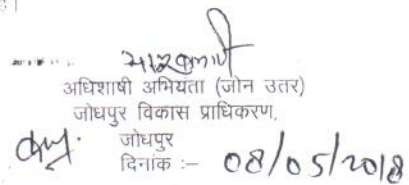 है।
अधिशाषी अभियंता (जोन उतर)
जोधपुर विकास प्राधिकरण,
जोधपुर
दिनांक :- 08/05/2018